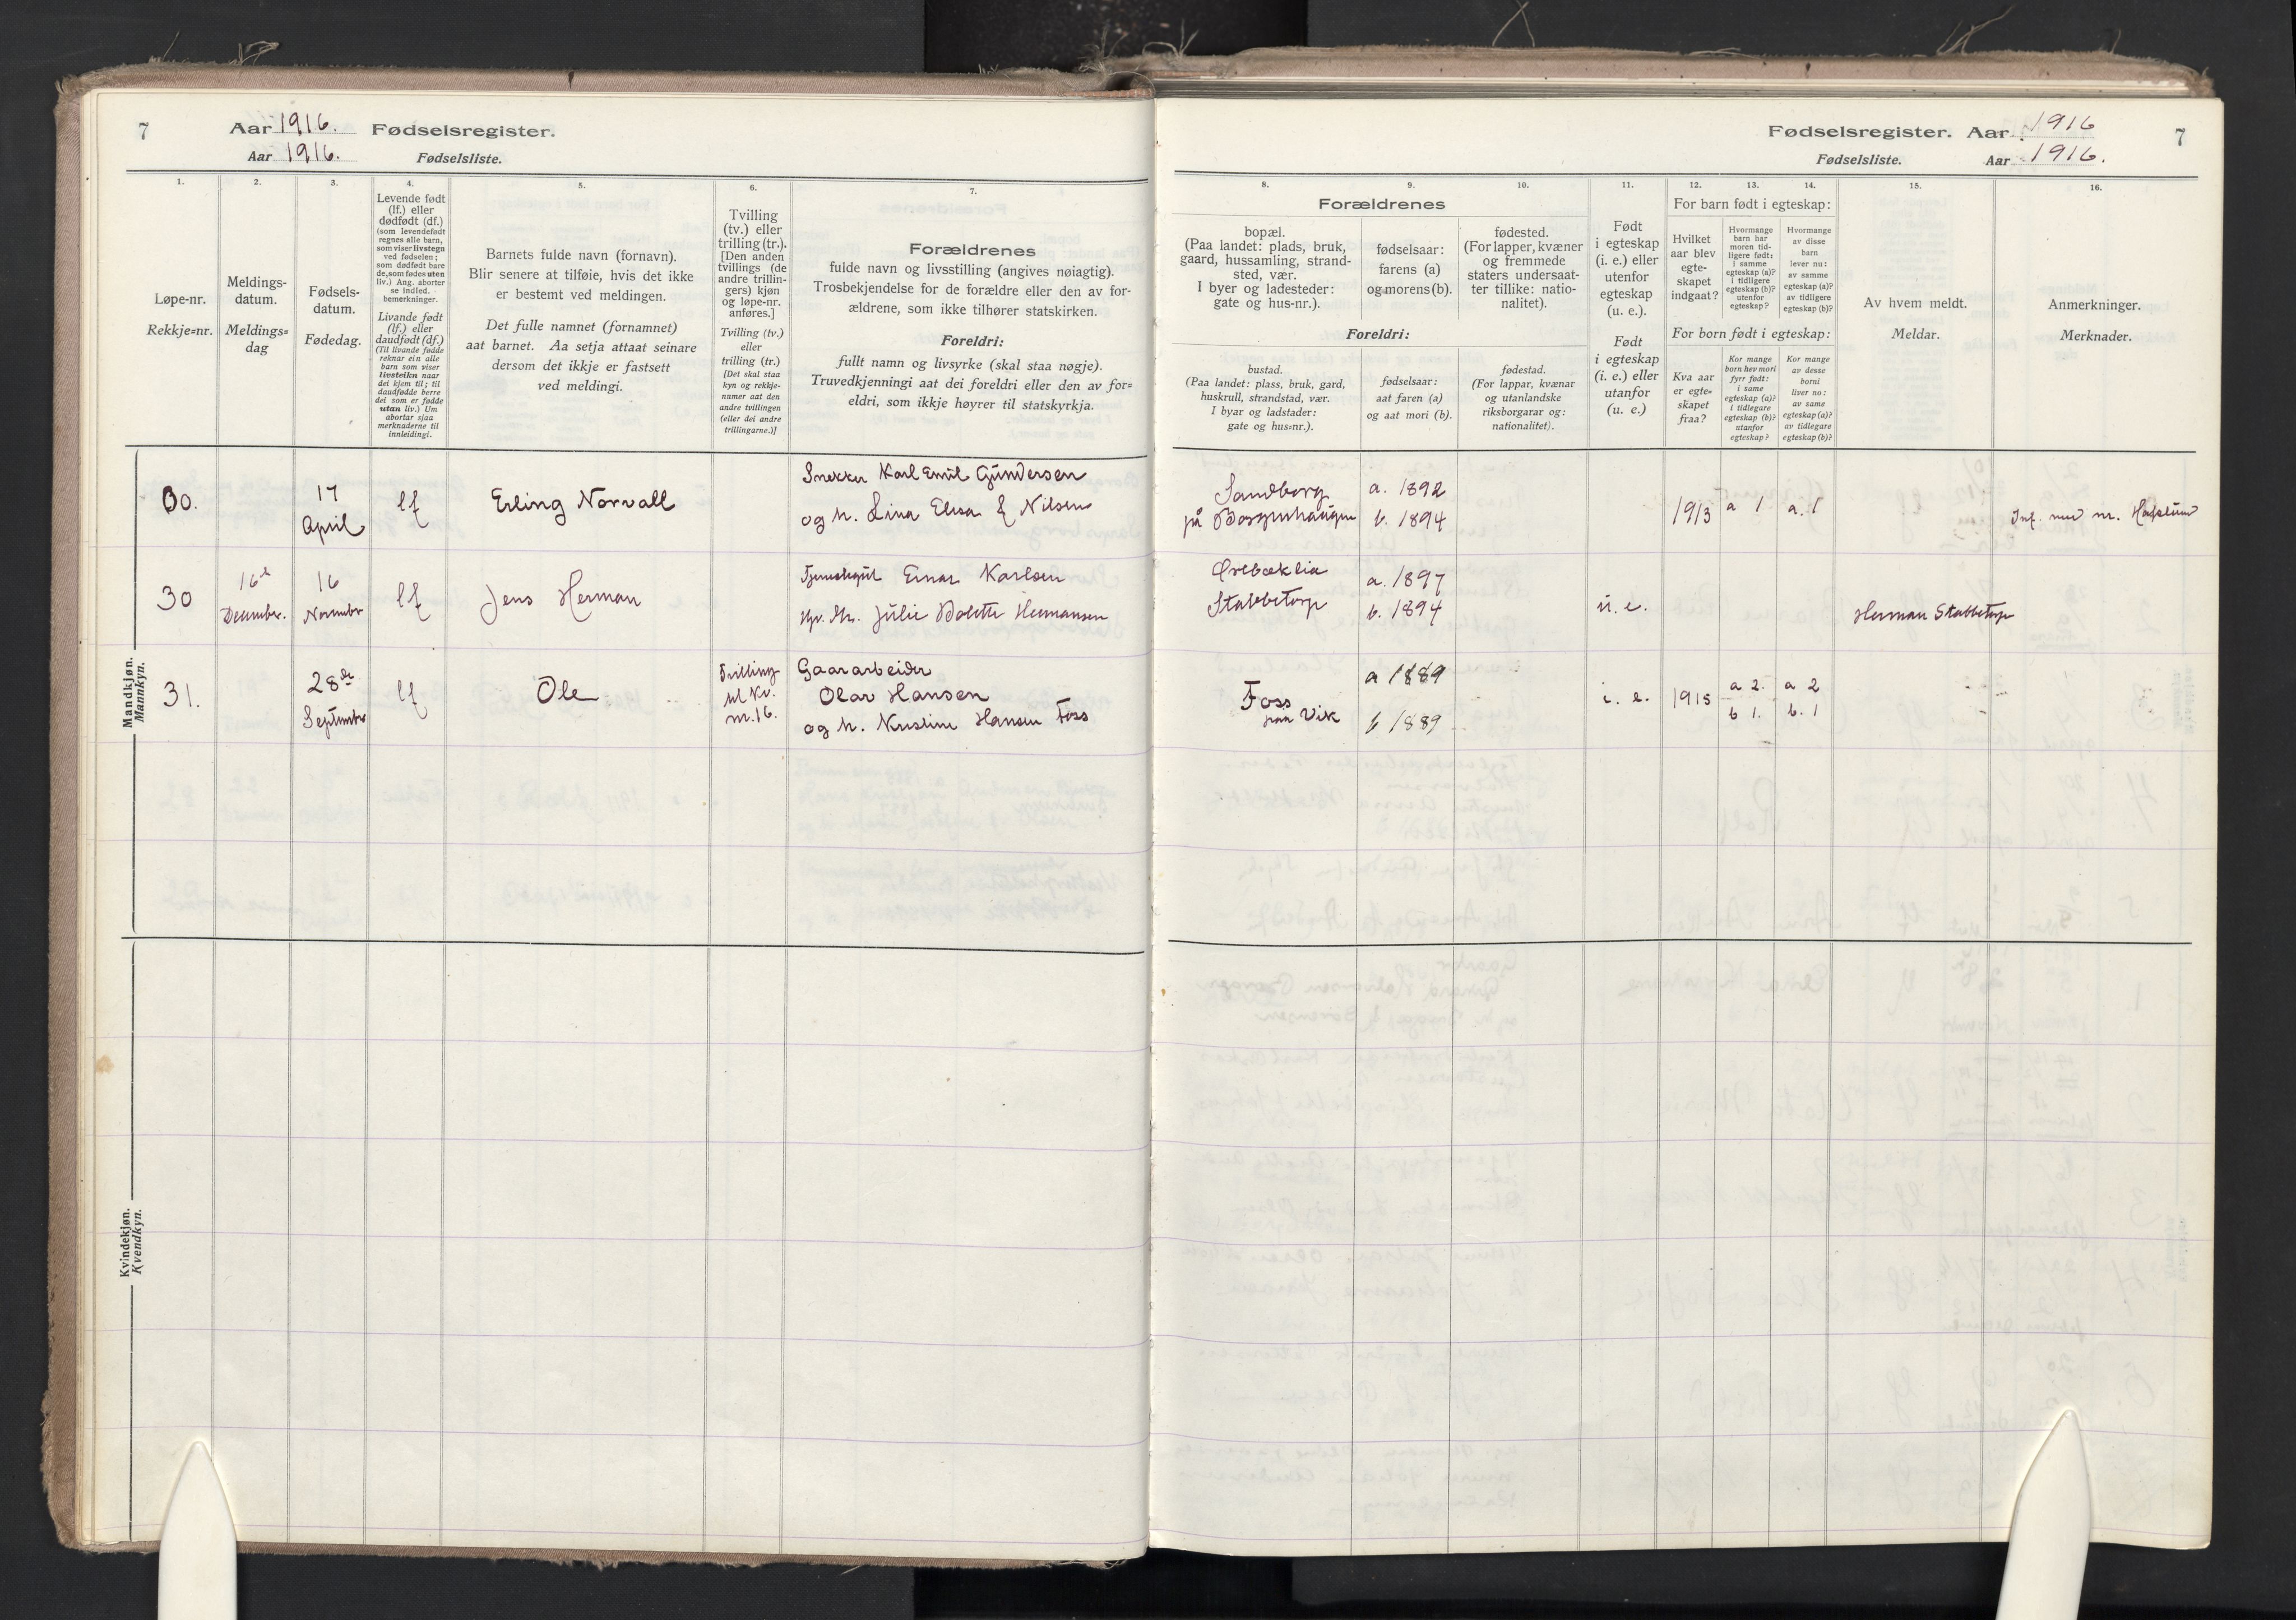 7
Aar 1916. Fødselsregister.
Aar 1916. Fødselsliste.
Fødselsregister. Aar 1916
7
Fødselsliste. Aar 1916.
1.
Løpe-nr.
Rekkje=nr.
2.
Meldings-
datum.
Meldings=
dag
3.
Fødsels-
datum.
Fødedag.
4.
Levende født
(lf.) eller
dødfødt (df.)
(som levendefødt
regnes alle barn,
som viser livstegn
ved fødselen;
som dødfødt bare
de, som fødes uten
liv.) Ang. aborter
se indled.
bemerkninger.
Livande født
(lf.) eller
daudfødt (df.)
(Til livande fødde
reknar ein alle
barn som viser
livsteikn naar
dei kjem til; til
daudfødde berre
dei som er fødde
utan liv.) Um
abortar sjaa
merknaderne til
innleidingi.
5.
Barnets fulde navn (fornavn).
Blir senere at tilføie, hvis det ikke
er bestemt ved meldingen.
Det fulle namnet (fornamnet)
aat barnet. Aa setja attaat seinare
dersom det ikkje er fastsett
ved meldingi.
6.
Tvilling
(tv.) eller
trilling (tr.).
[Den anden
tvillings (de
andre trillin-
gers) kjøn
og løpe-nr.
anføres.]
Tvilling (tv.)
eller
trilling (tr.)
[Det skal staa
kyn og rekkje-
numer aat den
andre tvillingen
(eller dei andre
trillingarne.)]
7.
Forældrenes
fulde navn og livsstilling (angives nøiagtig).
Trosbekjendelse for de forældre eller den av for-
ældrene, som ikke tilhører statskirken.
Foreldri:
fullt namn og livsyrke (skal staa nøgje).
Truvedkjenningi aat dei foreldri eller den av for=
eldri, som ikkje høyrer til statskyrkja.
Forældrenes
8.
bopæl.
(Paa landet: plads, bruk,
gaard, hussamling, strand-
sted, vær.
I byer og ladesteder:
gate og hus-nr.).
9.
fødselsaar:
farens (a)
og morens (b).
10.
fødested.
(For lapper, kvæner
og fremmede
staters undersaat-
ter tillike: natio-
nalitet).
Foreldri:
bustad.
(Paa landet: plass, bruk, gard,
huskrull, strandstad, vær.
I byar og ladstader:
gate og hus=nr.).
fødselsaar:
aat faren (a)
og aat mori (b).
fødestad.
(For lappar, kvænar
og utanlandske
riksborgarar og:
nationalitet).
11.
Født
i egteskap
(i. e.) eller
utenfor
egteskap
(u. e.).
Født
i egteskap
(i. e.) eller
utanfor
(u. e.)
12. 13. 14.
For barn født i egteskap:
Hvilket
aar blev
egte-
skapet
indgaat?
Hvormange
barn har
moren tid-
ligere født:
i samme
egteskap (a)?
i tidligere
egteskap (b)?
utenfor
egteskap?
Hvormange
av disse
barn
lever nu:
av samme
egteskap (a)?
av tidligere
egteskap (b)?
For born født i egteskap:
Kva aar
er egte=
skapet
fraa?
Kor mange
born hev mori
fyrr født:
i same
egteskap (a)?
i tidlegare
egteskap (b)?
utanfor
egteskap?
Kor mange
av desse
borni
liver no:
av same
egteskap (a)?
av tidlegare
egteskap (b)?
15.
Av hvem meldt.
Meldar.
16.
Anmerkninger.
Merknader.
Mandkjøn.
Mannkyn.
17
April
lf
Erling Norvall
Snekker Karl Emil Gundersen
og h. Lina Elisa f Nilsen
Sandborg
på Borgenhaugen
a. 1892
b. 1894
1913
a 1
a. 1
Inf. med nr. Hafslund
30
16de
December.
16
November
lf
Jens Herman
Tjenestegut Einar Karlsen
Julie Bolette Hermansen
Ørebæklia
Stabbetorp
a. 1897
b. 1894
u. e.
Herman Stabbetorp
31.
28de
September
lf
Ole
Tvilling
til Kv.
nr. 16.
Gaararbeider
Olar Hansen
og h. Kristine Hansen Foss
Foss
paa Vik
a 1889
b 1889
i. e.
1915
a 2.
b 1.
a 2
b. 1
Kvindekjøn.
Kvendkyn.